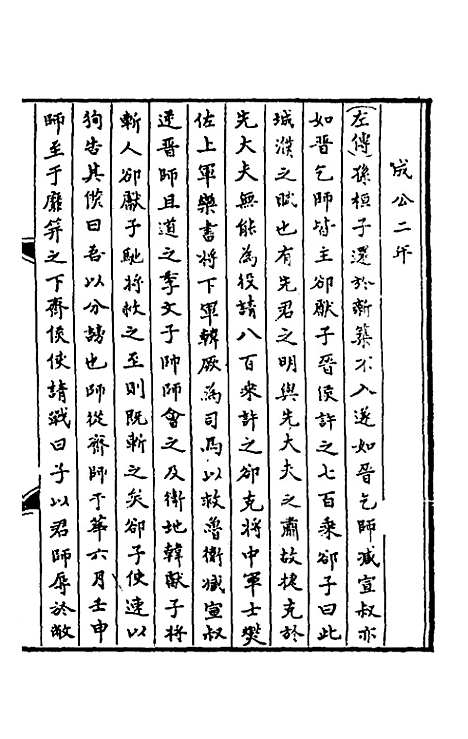 成公二年
左傳孫桓子還於新築不入遂如晉乞師臧宣叔亦
如晉乞師皆主郤獻子晉侯許之七百乘郤子曰此
城濮之賦也有先君之明與先大夫之肅故捷克於
先大夫無能為役請八百乘許之郤克將中軍士燮
佐上軍欒書將下軍韓厥為司馬以救魯衛臧宣叔
逆晉師且道之季文子帥師會之及衛地韓獻子將
斬人郤獻子馳將救之至則既斬之矣郤子使速以
狥告其僕曰吾以分謗也師從齊師于莘六月壬申
師至于靡笄之下齊侯使請戰曰子以君師辱於敝